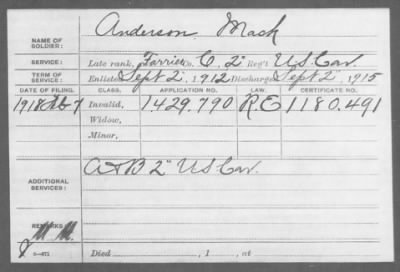 NAME OF SOLDIER: Anderson Mack
SERVICE: Late rank, Farrier Co. C, 2" Reg't U.S. Cav.
TERM OF SERVICE: Enlisted Sept 2", 1912 Discharged Sept 2", 1915
DATE OF FILING. CLASS. APPLICATION NO. LAW. CERTIFICATE NO.
1918 Feb 7 Invalid, 1.429.790 R.E 1180.491
Widow,
Minor,
ADDITIONAL SERVICES: A & B 2" US Cav.
REMARKS
M M.
3—471 Died , 1 , at